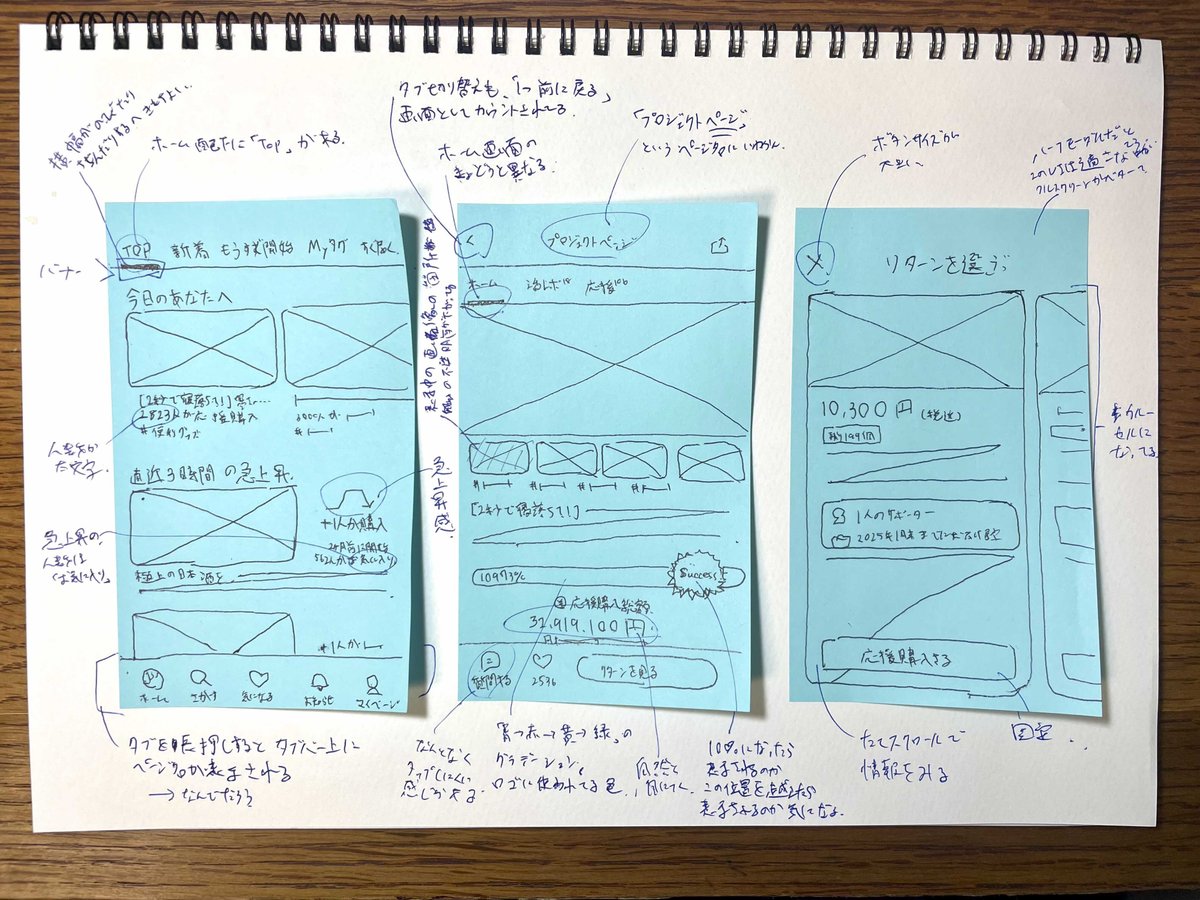 横幅がのびたり
ちぢんだりするべきもちよい。
ホーム配下に「TOP」がある。
タブ切り替えも、「1つ前に戻る」
画面としてカウントされてる。
ホーム画面の
きょどうと異なる。
「プロジェクトページ」
というページ名にいわかん。
ボタンサイズが
大きい。
ハーフモーダルだと
フルスクリーンがベター
バナー
TOP 新着 もうすぐ開始 Myタグ
今日のあなたへ
[2秒で寝落ち!]
2823人が応援購入
#便利グッズ
人数が
太文字。
直近3時間の急上昇
+1人が購入
急上昇感
急上昇の、
人数は
「お気に入り」
極上の日本酒を
+1人が
ホーム さがす 気になる お知らせ マイページ
タブを長押しすると タブバー上に
ページ名が表示される
→なんでだろう
<
プロジェクトページ
ホーム 活レポ18 応援106
表示中の画面
[2秒で寝落ち!]
10973%
Success
応援購入総額
32,919,100円
質問する 2536 リターンを見る
なんとなく
タップしにくい
感じがする。
青→赤→黄→緑、の
グラデーション。
ロゴに使われてる色。
自然と
目につく。
100%になったら
表示されるのか
この位置を点
表示されるのか 気になる。
X リターンを選ぶ
10,300円 (税込)
残り199個
1人のサポーター
2025年1月末までにお届け予定
応援購入する
カルーセルに
なってる。
たてスクロールで
情報をみる
固定